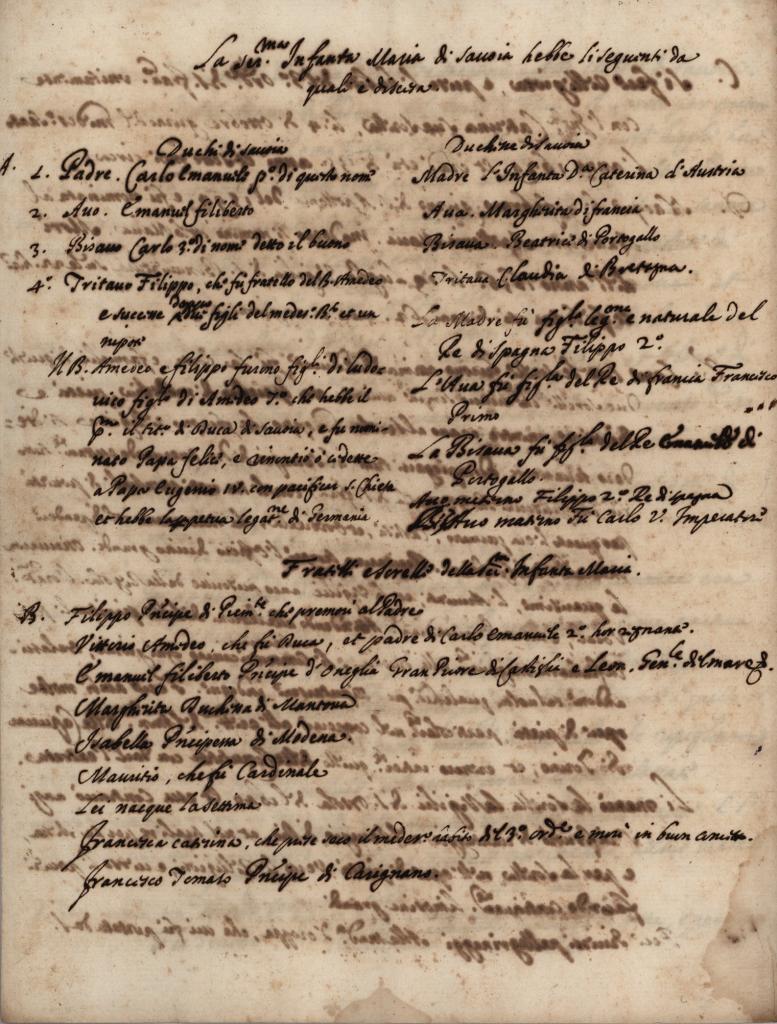 La Ser.ma Infanta Maria di Savoia hebbe li seguenti da
quali è discesa
Duchi di Savoia
A. 1. Padre. Carlo Emanuele p.o di questo nome
2. Avo. Emanuel filiberto
3. Bisavo Carlo 3.o di nome detto il buono
4.o Tritavo Filippo, che fu fratello del B. Amedeo
e successe doppo figli del medes.o B.to et un
nipote
NB. Amedeo e filippo furono figli di ludo
vico figlo di Amedeo 7.o che hebbe il
p.mo il tit.o di Duca di Savoia, e fu nomi
nato Papa felice, e cedette
a Papa Eugenio IV. con pacificar S. Chiesa
et hebbe la perpetua legat.ne di Germania
Duchesse di Savoia
Madre l'Infanta D.a Caterina d'Austria
Ava. Margherita di francia
Bisava. Beatrice di Portogallo
Tritava Claudia di Bretagna.
La Madre fu figl.a leg.ma e naturale del
Re di Spagna Filippo 2.o
L'Ava fu figl.a del Re di francia Francesco
Primo
La Bisava fu figl.a del Re Emanuele di
Portogallo.
Avo materno Filippo 2.o Re di Spagna
Bisavo materno Fu Carlo V. Imperatore
Fratelli e Sorelle della Ser. Infanta Maria.
B. Filippo Prencipe di Piem.te che premorì al Padre
Vittorio Amedeo, che fu Duca, et padre di Carlo Emanuele 2.o hor regnante.
Emanuel filiberto Prencipe d'Oneglia Gran Priore di Castiglia e Leon. Gen.le del mare &.
Margherita Duchessa di Mantova
Isabella Principessa di Modena.
Mauritio, che fu Cardinale
Lei nacque la settima
Francesca Catterina, che prese seco il medes.o habito del 3.o ord.e e morì in buon concetto.
Francesco Tomaso Prencipe di Carignano.